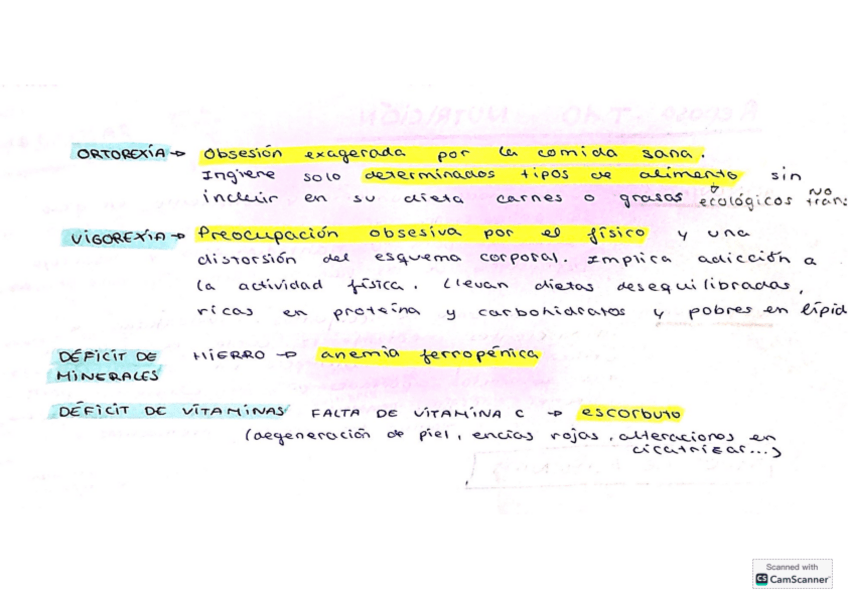 ORTOREXÍA → Obsesión exagerada por la comida sana.
Ingiere solo determinados tipos de alimento sin
incluir en su dieta carnes o grasas ecológicos NO
VIGOREXIA → Preocupación obsesiva por el físico y una
distorsión del esquema corporal. Implica adicción a
la actividad física. Llevan dietas desequilibradas,
ricas en proteína y carbohidratos y pobres en lípid
DÉFICIT DE MINERALES HIERRO → anemia ferropénica
DÉFICIT DE VITAMINAS FALTA DE VITAMINA C → escorbuto
(degeneración de piel, encías rojas, alteraciones en
cicatrizar...)
Scanned with
CS CamScanner